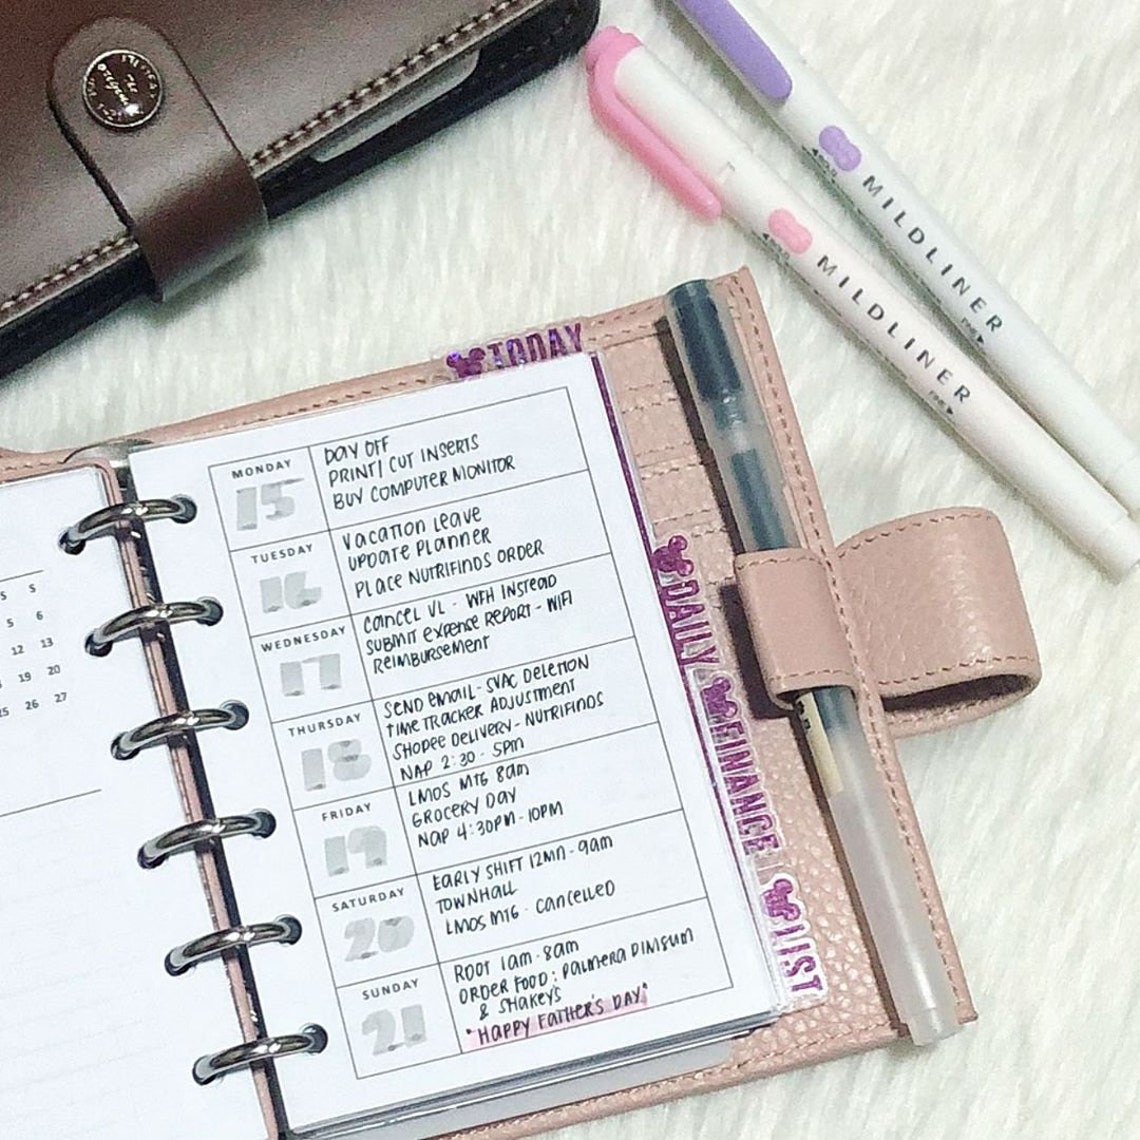 MILDLINER
MILDLINER
TODAY
DAILY
FINANCE
LIST
S S
5 6
12 13
19 20
25 26 27
MONDAY
15
DAY OFF
PRINT/ CUT INSERTS
BUY COMPUTER MONITOR
TUESDAY
16
VACATION LEAVE
UPDATE PLANNER
PLACE NUTRIFINDS ORDER
WEDNESDAY
17
CANCEL VL - WFH INSTEAD
SUBMIT EXPENSE REPORT - WIFI
REIMBURSEMENT
THURSDAY
18
SEND EMAIL - SVAC DELETION
TIME TRACKER ADJUSTMENT
SHOPEE DELIVERY - NUTRIFINDS
NAP 2:30 - 5PM
FRIDAY
19
LMOS MTG 8AM
GROCERY DAY
NAP 4:30PM - 10PM
SATURDAY
20
EARLY SHIFT 12MN - 9AM
TOWNHALL
LMOS MTG - CANCELLED
SUNDAY
21
ROOT 1AM - 8AM
ORDER FOOD: PALMERA DIMSUM
& SHAKEY'S
*HAPPY FATHER'S DAY*